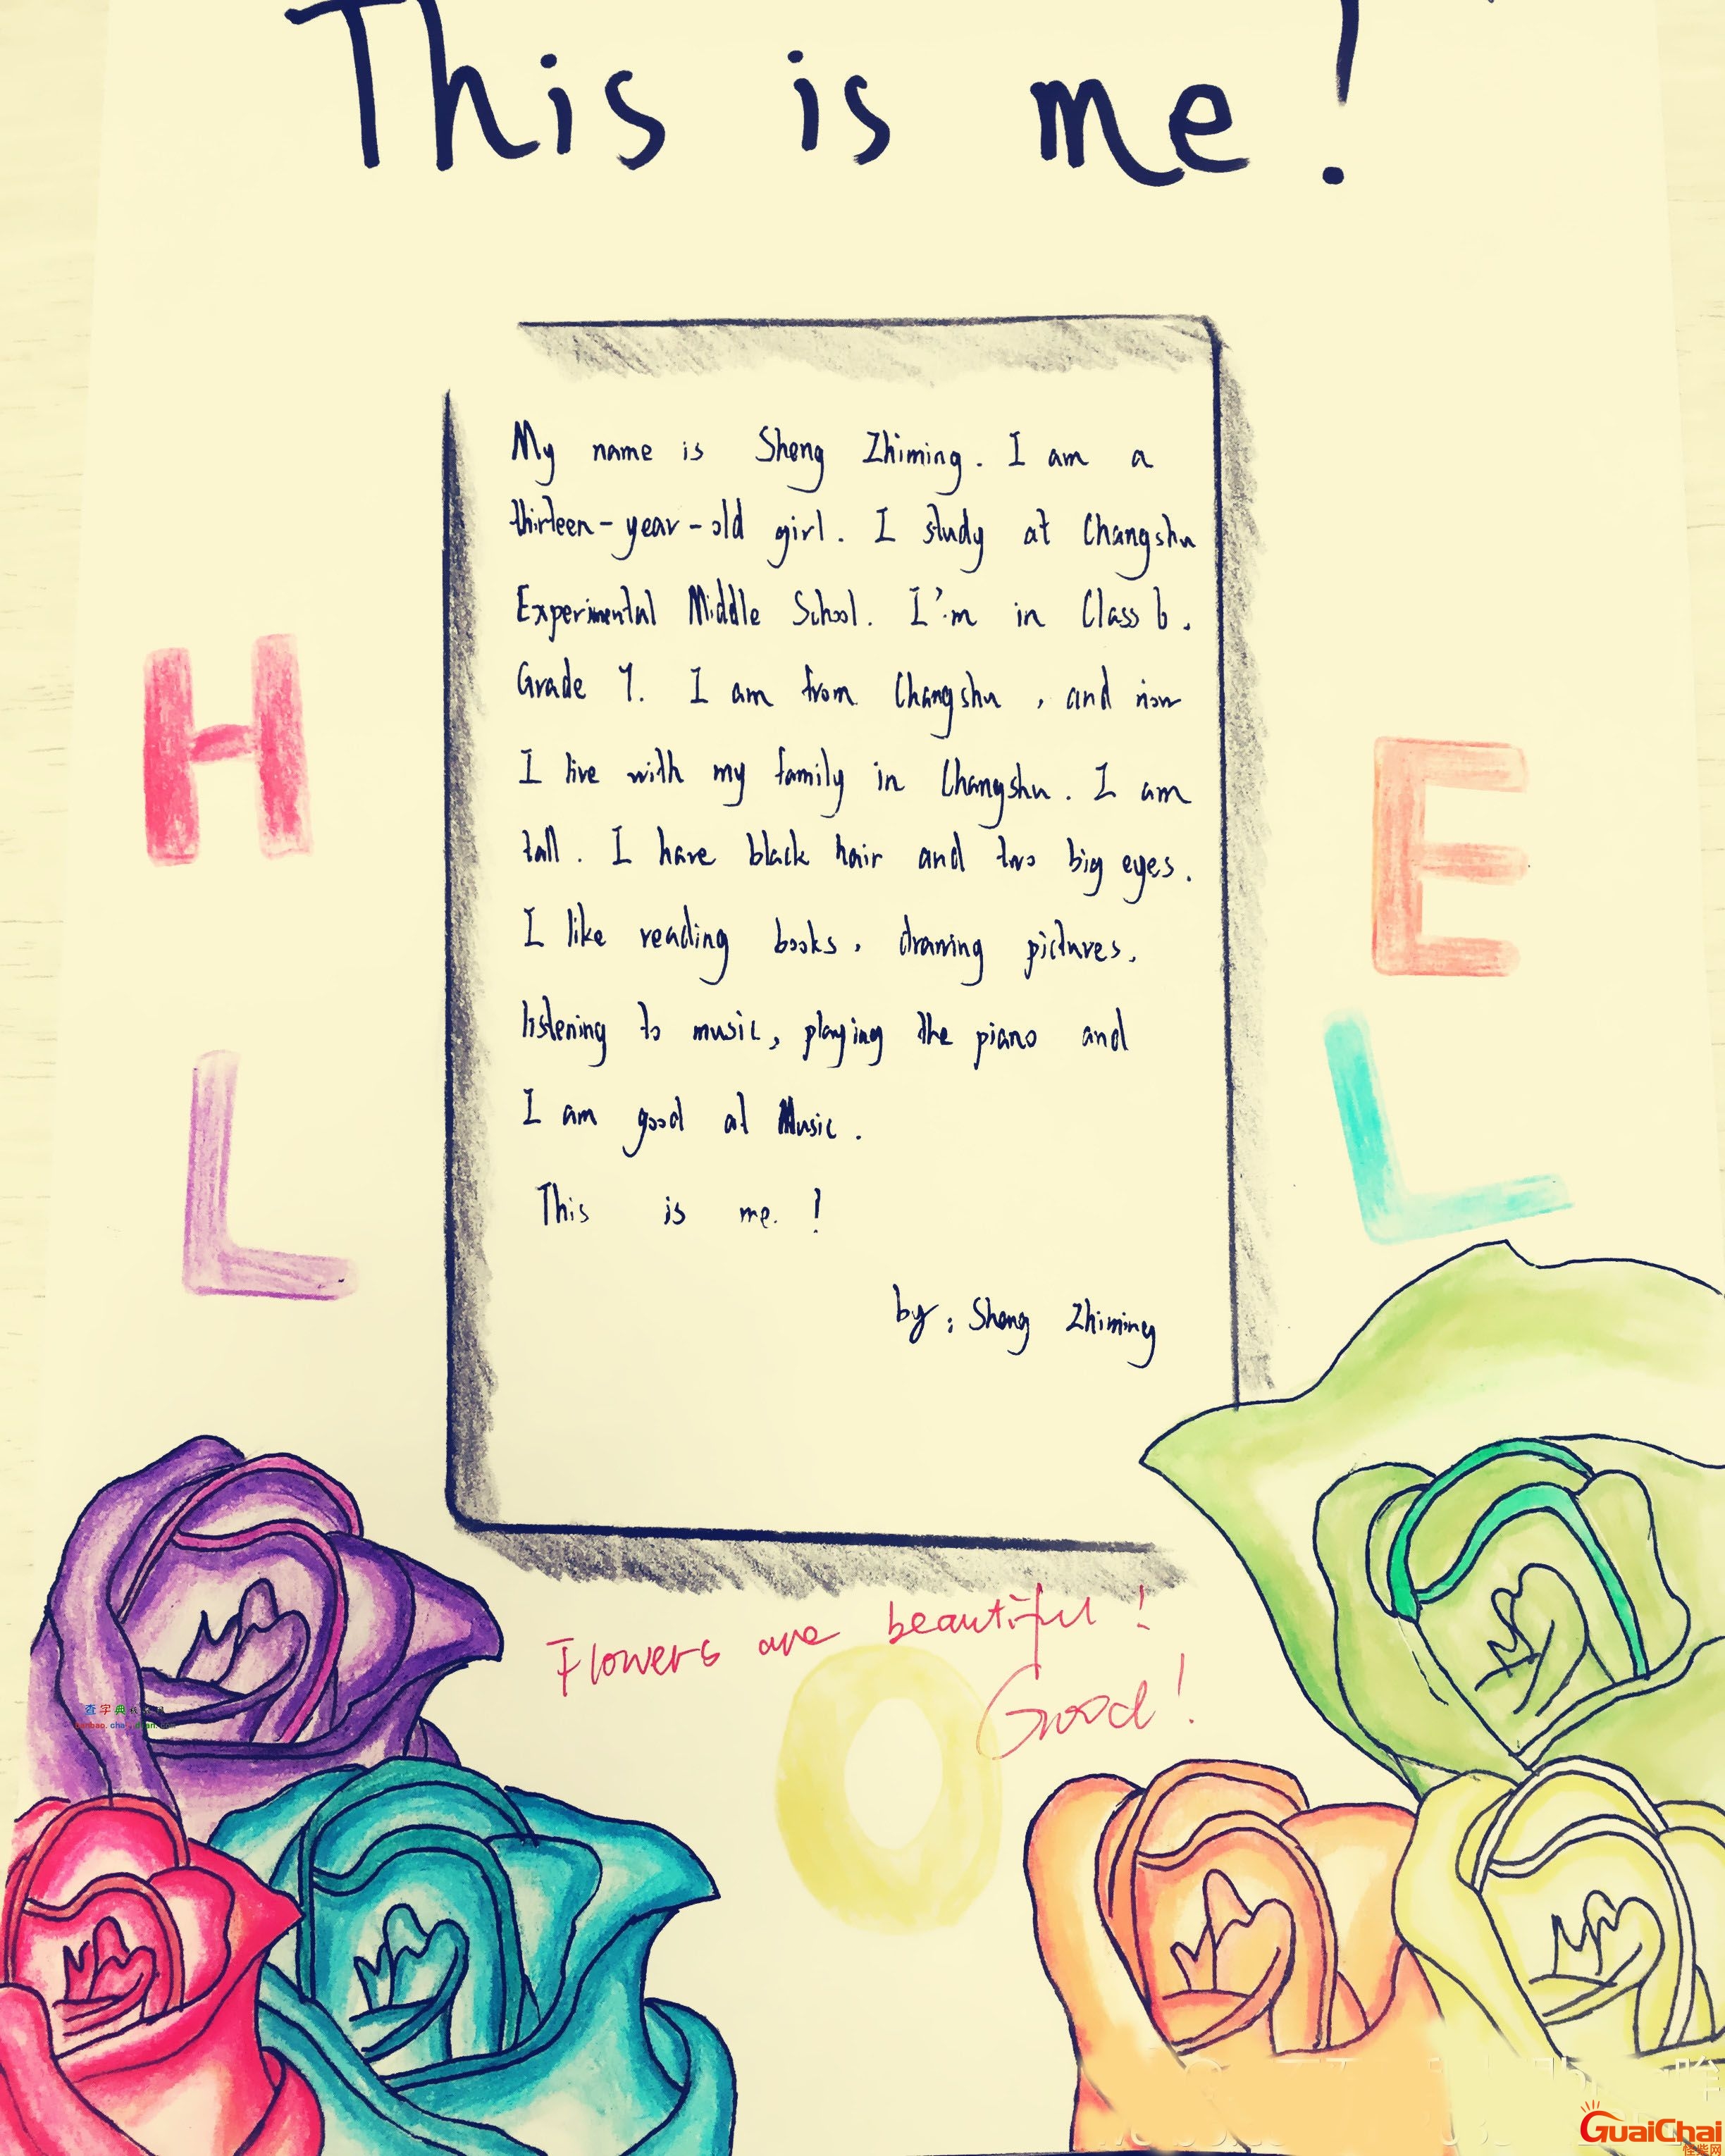 This is me!
My name is Sheng Zhiming. I am a
thirteen-year-old girl. I study at Changshu
Experimental Middle School. I'm in Class 6.
Grade 7. I am from Changshu, and now
I live with my family in Changshu. I am
tall. I have black hair and two big eyes.
I like reading books, drawing pictures,
listening to music, playing the piano and
I am good at Music.
This is me.!
by: Sheng Zhiming
H
E
L
L
O
Flowers are beautiful!
Good!
查字典
GuaiChai
怪柴网